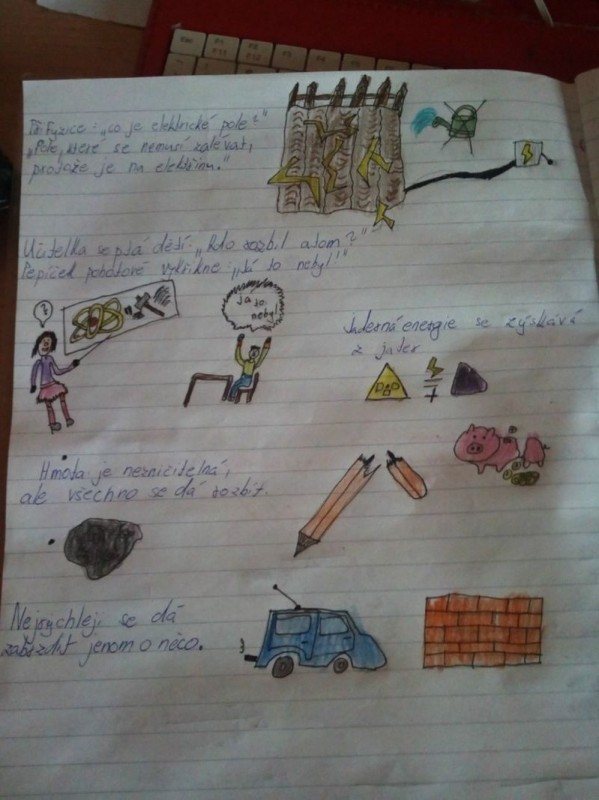 Př. Fyzice: „co je elektrické pole?"
„Pole, které se nemusí zalévat,
protože je na elektřinu."
Učitelka se ptá dětí: „Kdo rozbil atom?"
Pepíček pohotově vykřikne: „Já to nebyl!"
?
já to
nebyl!
Jaderná energie se získává
z jader
Hmota je nezničitelná,
ale všechno se dá rozbít.
Nejrychleji se dá
zabrzdit jenom o něco.